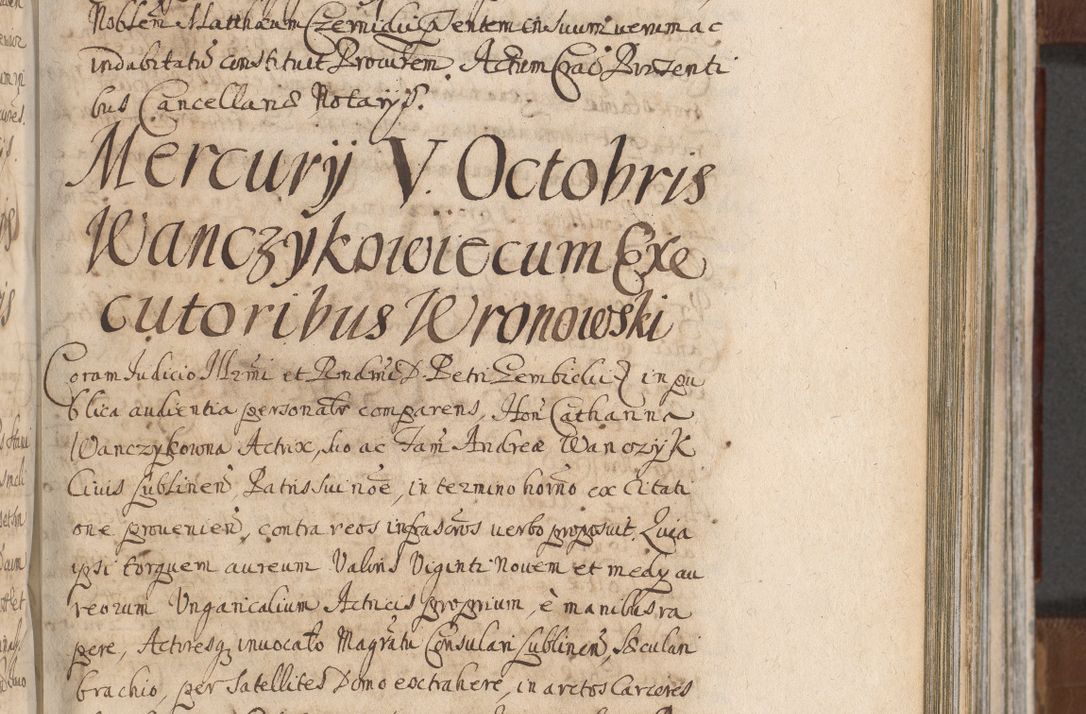 Noblem Matthæum Czernicki pntem en suum uerum ac
indubitatũ constituit Procurem. Actum Crac̃. Præsenti
bus Cancellariæ Notarijs.
Mercurij V. Octobris
Wanczykowie cum Exe
cutoribus Wronowski
Coram Judicio Illr̃mi et Rendm̃i D. Petri Gembicki in pu
blica audientia personalr comparens, Hon̄ Catharina
Wanczykowna Actrix, suo ac Fam̃ Andreæ Wanczÿk
Ciuis Lublinen̄, Patris sui noẽ, in termino horño ex Citati
one prouenien̄, contra reos infrascr̃os uerbo proposuit. Quia
ipsi torquem aureum Valoris Viginti Nouem et medy au
reorum Vngaricalium Actricis proprium, è manibus ra
pere, Actoresq; inuocato Magr̃atu Consulari Lublinen̄, sæculari
brachio, per Satellites Domo extrahere, in arctos Carceres